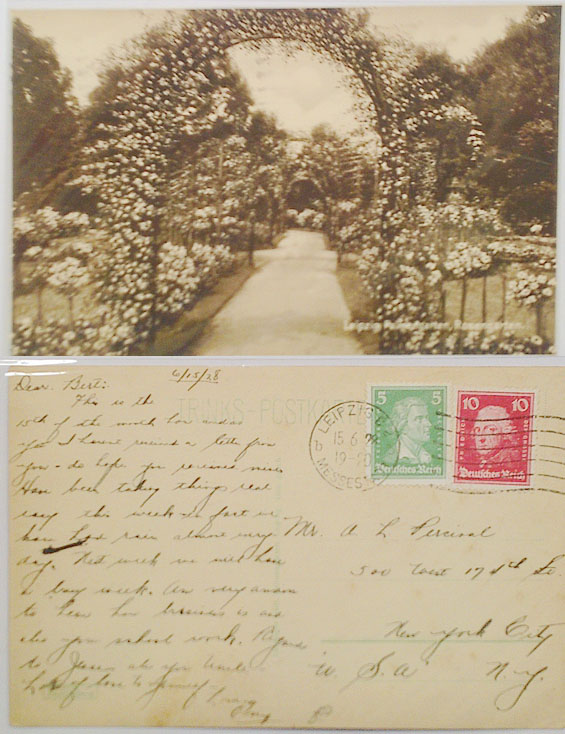 Leipzig Palmengarten, Rosengarten.
Dear Bert: 6/15/28
This is the
TRINKS-POSTKARTE
15th of the month how and as
yet I haven't received a letter from
you - do hope you received mine
Have been taking things real
easy this week - in fact we
have had rain almost every
day. Next week we will have
a busy week. Am very anxious
to hear how business is and
also your school work. Regards
to
Lots of love to yourself
LEIPZIG
b 15.6.
19-20
MESSEST
5 5
Deutsches Reich
10 10
Deutsches Reich
Mr. A L Percival
500 West 175th St.
New York City
U.S.A. N.Y.